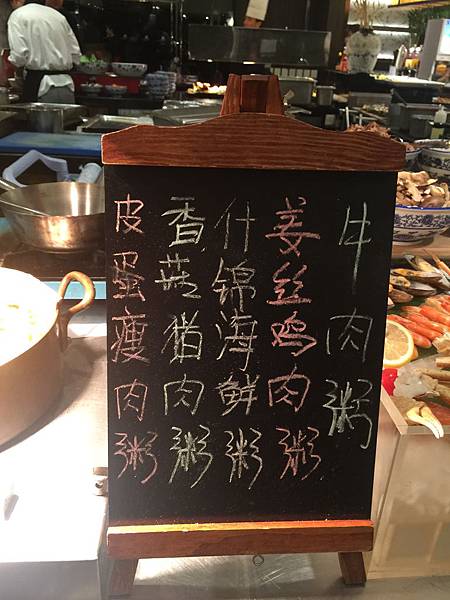 牛肉粥
姜丝鸡肉粥
什锦海鲜粥
香菇猪肉粥
皮蛋瘦肉粥